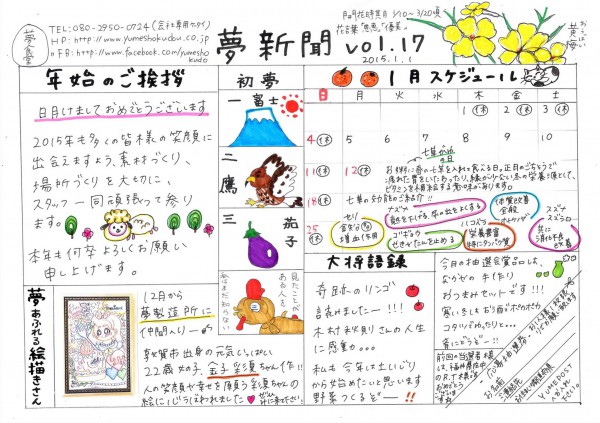 夢食堂
TEL:080-2950-0724(会社専用ケータイ)
HP:http://www.yumeshokudou.co.jp
FB:http://www.facebook.com/yumeshokudo
夢新聞 vol.17
2015.1.1
開花時期 1/10〜3/20頃
花言葉「恩恵」「優美」
黄梅
おうばい
年始のご挨拶
明けましておめでとうございます
2015年も多くの皆様の笑顔に
出会えますよう、素材づくり、
場所づくりを大切に、
スタッフ一同頑張って参り
ます。
本年も何卒よろしくお願い
申し上げます。
初夢
一富士
二鷹
三茄子
見たことが
ある人を
私はまだ知らない
1月スケジュール
日 月 火 水 木 金 土
1 休 2 休 3 休
4 休 5 6 7 8 9 10
七草がゆの日
11 12
18 休
25 休
お粥に春の七草を入れ食べる日。正月のごちそうで
疲れた胃をいたわったり、緑の少ない冬の栄養源として、
ビタミンを補給する意味があります。
七草の効能をご紹介!!
セリ
貧血
増血作用
ナズナ
熱を下げる、尿の出をよくする
ゴギョウ
せきやたんを止める
ハコベラ
栄養豊富
特にタンパク質
ホトケノザ
体質改善
全般
スズナ
スズシロ
共に
消化不良
改善
大将語録
奇跡のリンゴ
読みました〜!!!
木村秋則さんの人生
に感動の…
私も今年は土いじり
から始めたいと思います
野菜つくるぞー!!
今月の抽選会賞品は、
なかぞのの手作り
おつまみセットです!!
寒いときもお酒でポカポカ
コタツでぬったりと…
夢あふれる絵描きさん
12月から
夢製造所に
仲間入り〜
敦賀市出身の元気いっぱい
22歳女の子、金子彩夏ちゃん作!!
人の笑顔や幸せを願う彩夏ちゃんの
絵にいやされました
ぜひ見に来て下さい
前回の当選者様は、
千葉県在住
のR.T様
です
おめでとう
ございます
応募抽選券
お名前
ご連絡先
YUMEPOST
へ入れて
ください。